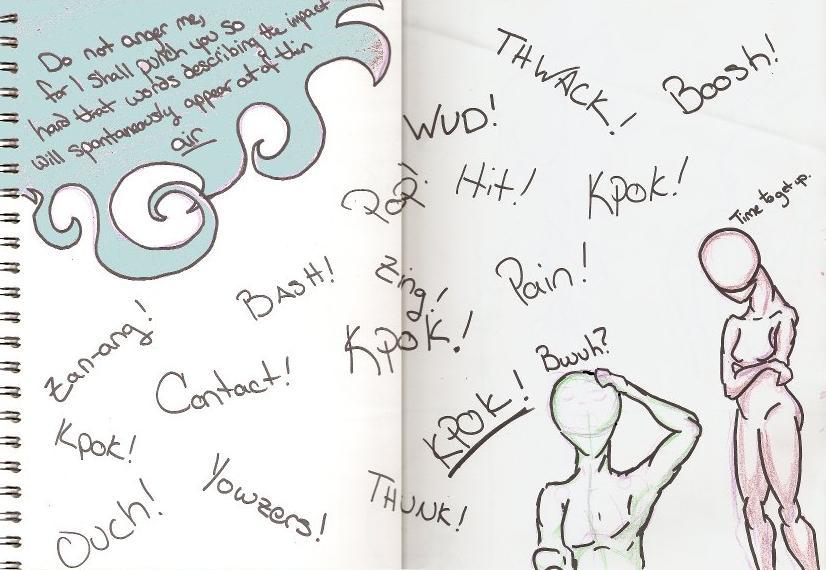 Do not anger me,
for I shall punch you so
hard that words describing the impact
will spontaneously appear out of thin
air
THWACK!
Boosh!
WUD!
Hit!
KPOK!
Time to get up.
BASH!
Zing!
Pain!
Zan-ang!
KPOK!
Contact!
Bwuh?
KPOK!
Kpok!
Yowzers!
THUNK!
Ouch!